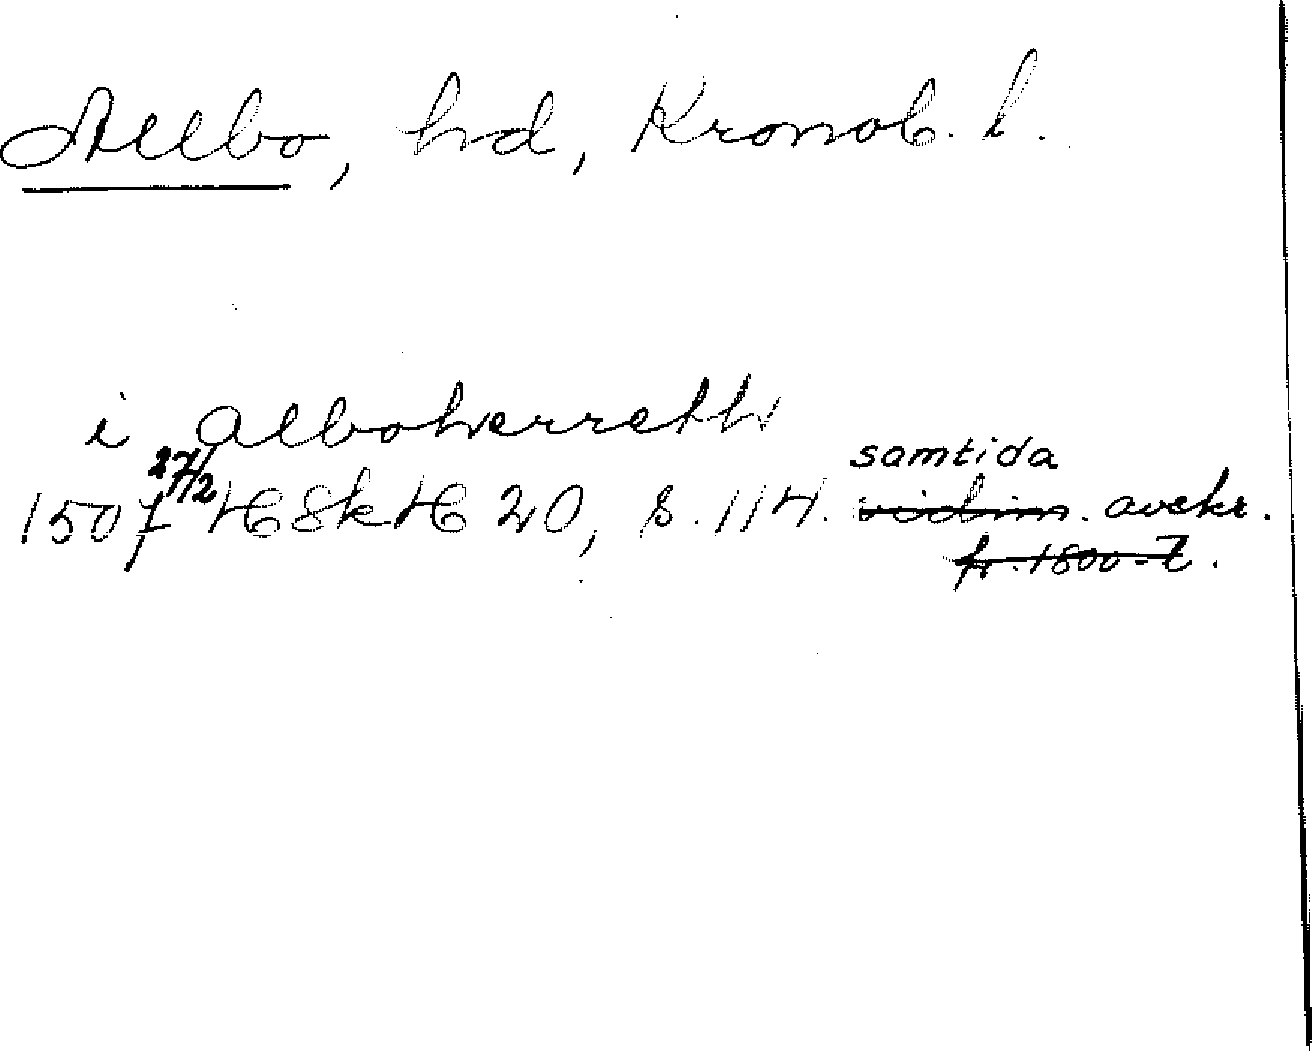 Allbo, hd, Kronob. l.
i alboherreth
1507 27/2 HSkH 20, s. 114. samtida vidim. avskr.
fr. 1800-t.